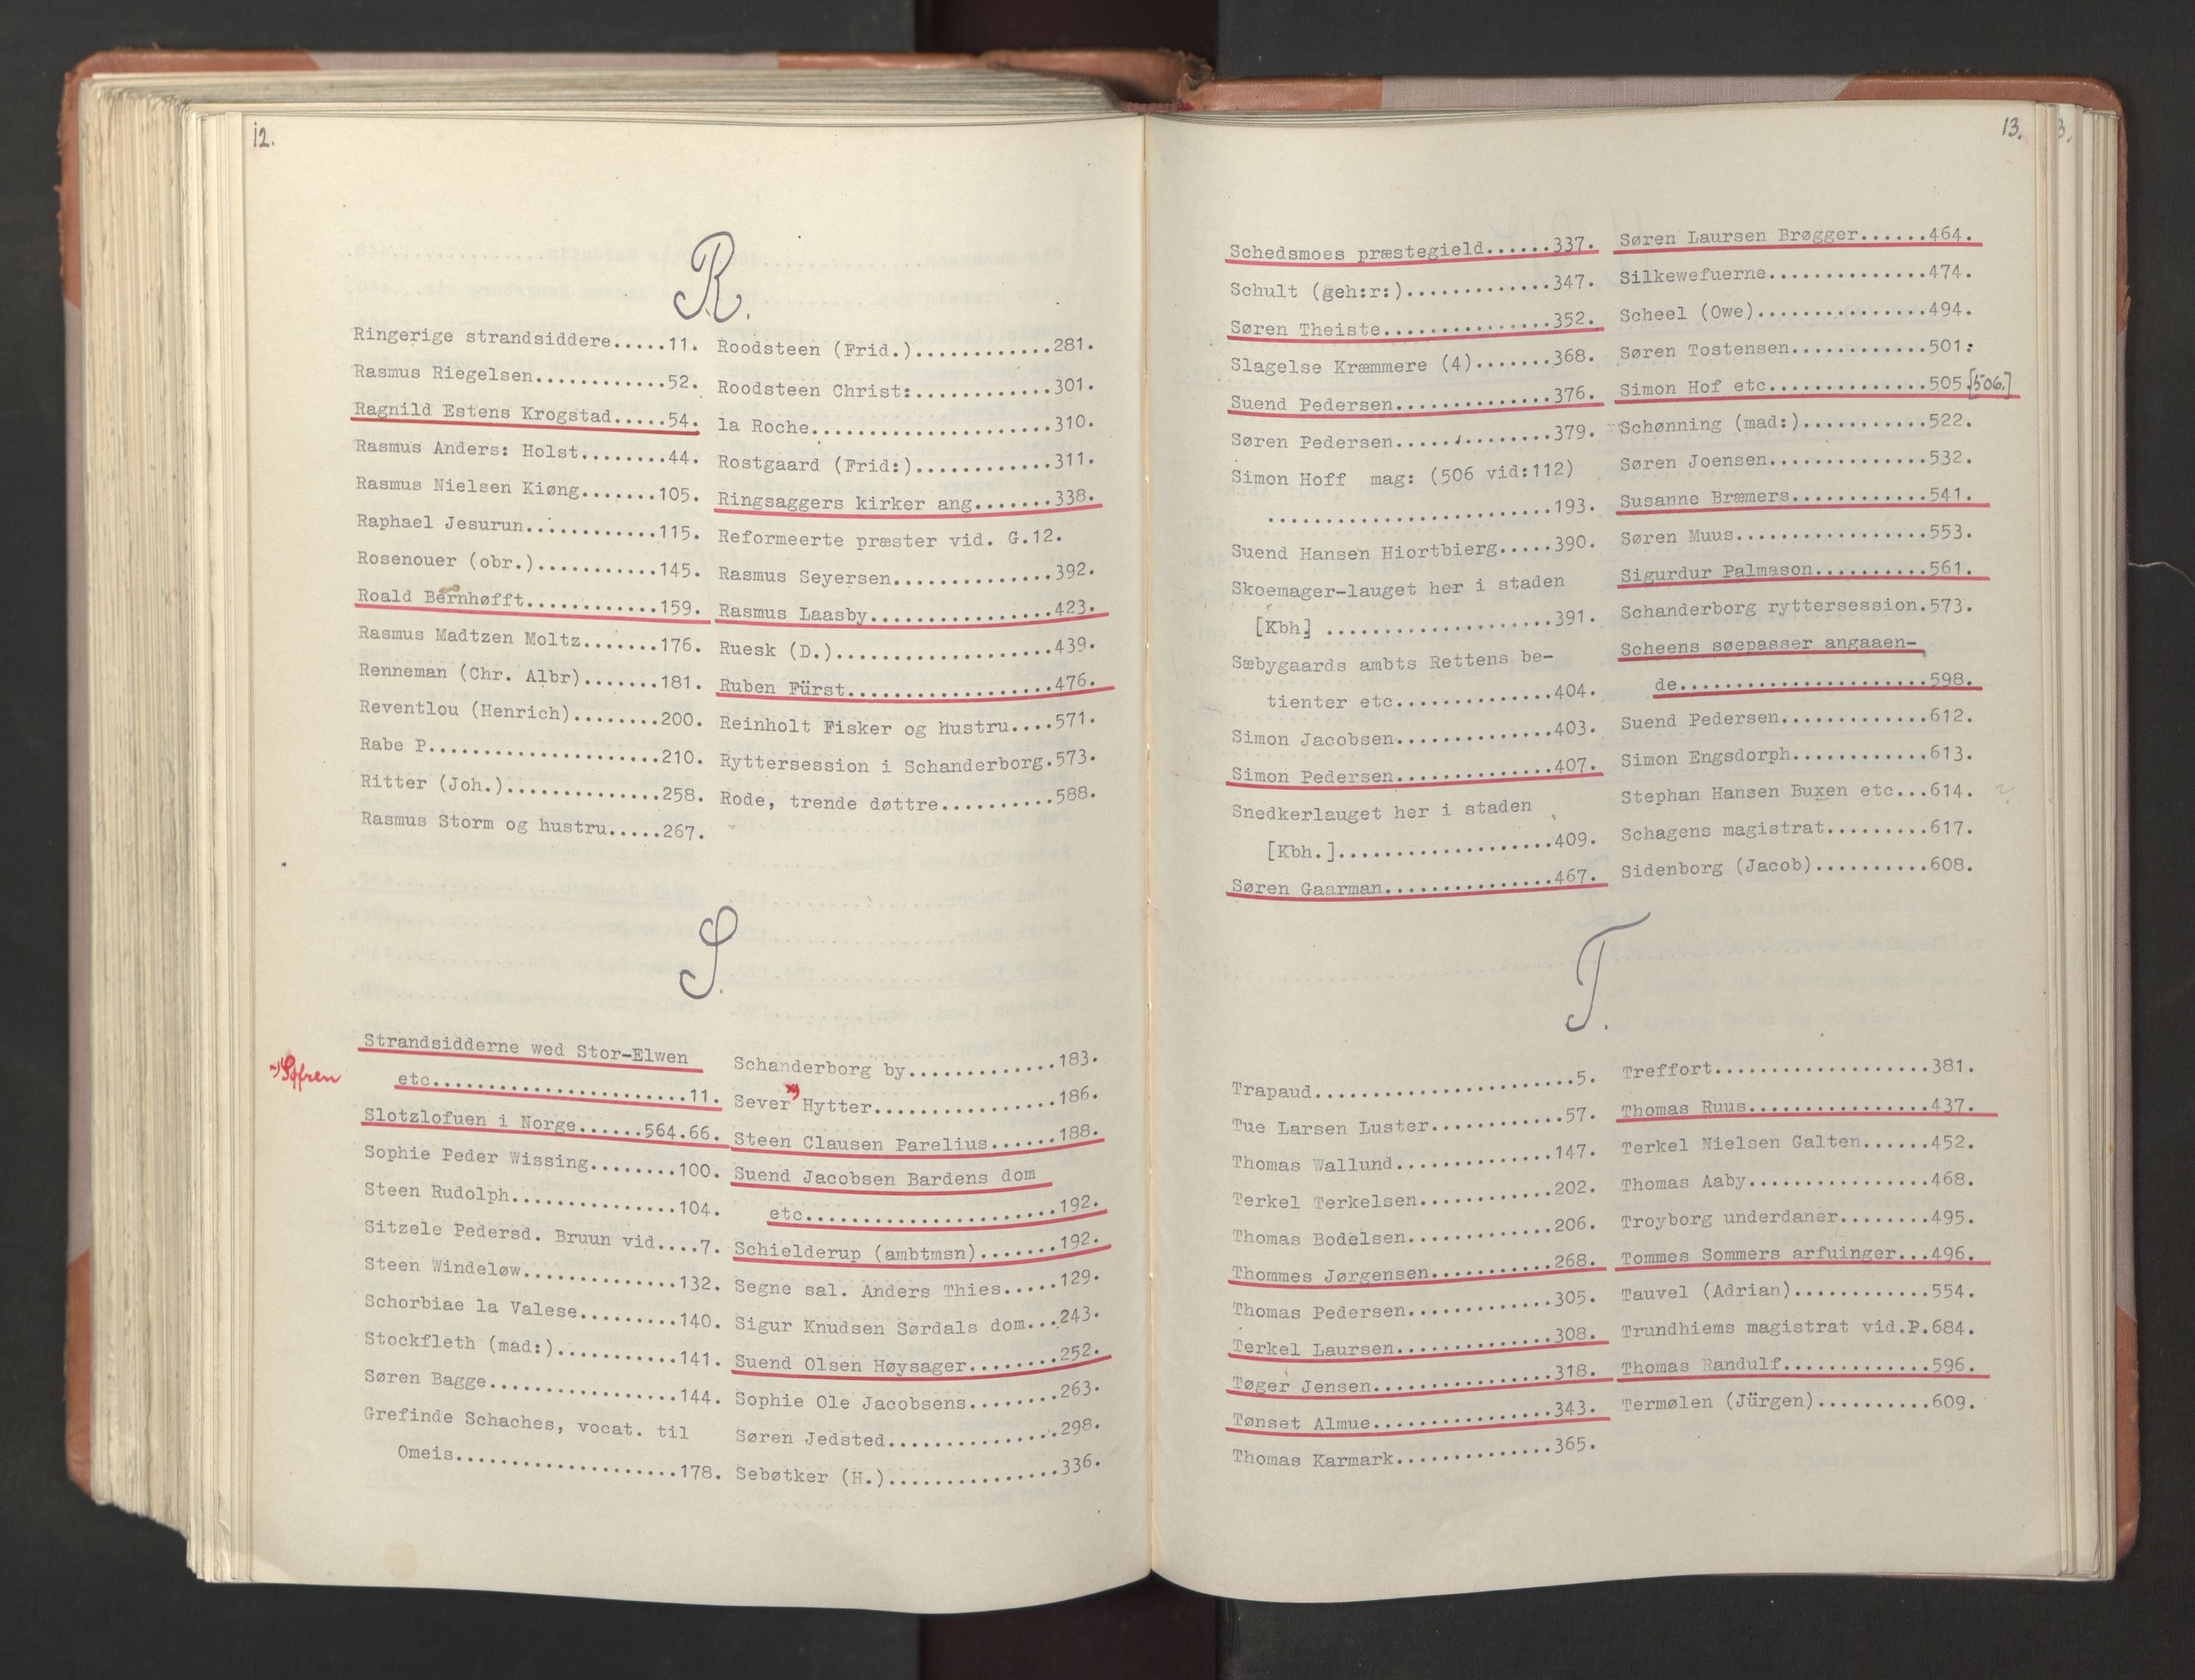 12.
R.
Ringerige strandsiddere.....11.
Rasmus Riegelsen............52.
Ragnild Estens Krogstad.....54.
Rasmus Anders: Holst........44.
Rasmus Nielsen Kiøng.......105.
Raphael Jesurun............115.
Rosenouer (obr.)...........145.
Roald Bernhøfft............159.
Rasmus Madtzen Moltz.......176.
Renneman (Chr. Albr).......181.
Reventlou (Henrich)........200.
Rabe P.....................210.
Ritter (Joh.)..............258.
Rasmus Storm og hustru.....267.
Roodsteen (Frid.)............281.
Roodsteen Christ:............301.
la Roche.....................310.
Rostgaard (Frid:)............311.
Ringsaggers kirker ang.......338.
Reformeerte præster vid. G.12.
Rasmus Seyersen..............392.
Rasmus Laasby................423.
Ruesk (D.)...................439.
Ruben Fürst..................476.
Reinholt Fisker og Hustru....571.
Ryttersession i Schanderborg.573.
Rode, trende døttre..........588.
S.
Strandsidderne wed Stor-Elwen
etc.......................11.
x) Søfren
Slotzlofuen i Norge......564.66.
Sophie Peder Wissing........100.
Steen Rudolph...............104.
Sitzele Pedersd. Bruun vid....7.
Steen Windeløw..............132.
Schorbiae la Valese.........140.
Stockfleth (mad:)...........141.
Søren Bagge.................144.
Grefinde Schaches, vocat. til
Omeis....................178.
Schanderborg by.............183.
Sever x) Hytter................186.
Steen Clausen Parelius......188.
Suend Jacobsen Bardens dom
etc......................192.
Schielderup (ambtmsn).......192.
Segne sal. Anders Thies.....129.
Sigur Knudsen Sørdals dom...243.
Suend Olsen Høysager........252.
Sophie Ole Jacobsens........263.
Søren Jedsted...............298.
Sebøtker (H.)...............336.
13.
3.
Schedsmoes præstegield......337.
Schult (geh:r:).............347.
Søren Theiste...............352.
Slagelse Kræmmere (4).......368.
Suend Pedersen..............376.
Søren Pedersen..............379.
Simon Hoff  mag: (506 vid:112)
.........................193.
Suend Hansen Hiortbierg.....390.
Skoemager-lauget her i staden
[Kbh] ....................391.
Sæbygaards ambts Rettens be-
tienter etc..............404.
Simon Jacobsen..............403.
Simon Pedersen..............407.
Snedkerlauget her i staden
[Kbh.]...................409.
Søren Gaarman...............467.
Søren Laursen Brøgger......464.
Silkewefuerne..............474.
Scheel (Owe)...............494.
Søren Tostensen............501:
Simon Hof etc..............505.[506.]
Schønning (mad:)...........522.
Søren Joensen..............532.
Susanne Bræmers............541.
Søren Muus.................553.
Sigurdur Palmason..........561.
Schanderborg ryttersession.573.
Scheens søepasser angaaen-
de......................598.
Suend Pedersen.............612.
Simon Engsdorph............613.
Stephan Hansen Buxen etc...614.
Schagens magistrat.........617.
Sidenborg (Jacob)..........608.
T.
Trapaud.......................5.
Tue Larsen Luster............57.
Thomas Wallund..............147.
Terkel Terkelsen............202.
Thomas Bodelsen.............206.
Thommes Jørgensen...........268.
Thomas Pedersen.............305.
Terkel Laursen..............308.
Tøger Jensen................318.
Tønset Almue................343.
Thomas Karmark..............365.
Treffort...................381.
Thomas Ruus................437.
Terkel Nielsen Galten......452.
Thomas Aaby................468.
Troyborg underdaner........495.
Tommes Sommers arfuinger...496.
Tauvel (Adrian)............554.
Trundhiems magistrat vid.P.684.
Thomas Randulf.............596.
Termølen (Jürgen)..........609.